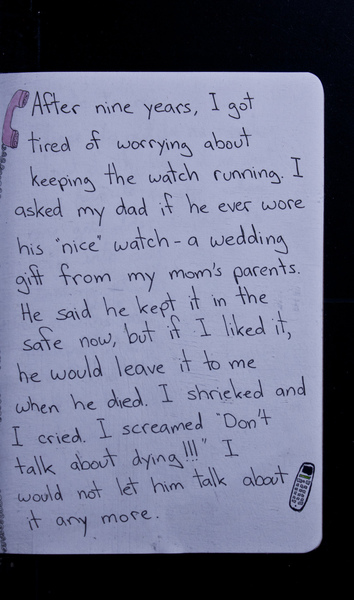 After nine years, I got
tired of worrying about
keeping the watch running. I
asked my dad if he ever wore
his "nice" watch - a wedding
gift from my mom's parents.
He said he kept it in the
safe now, but if I liked it,
he would leave it to me
when he died. I shrieked and
I cried. I screamed "Don't
talk about dying!!!" I
would not let him talk about
it any more.